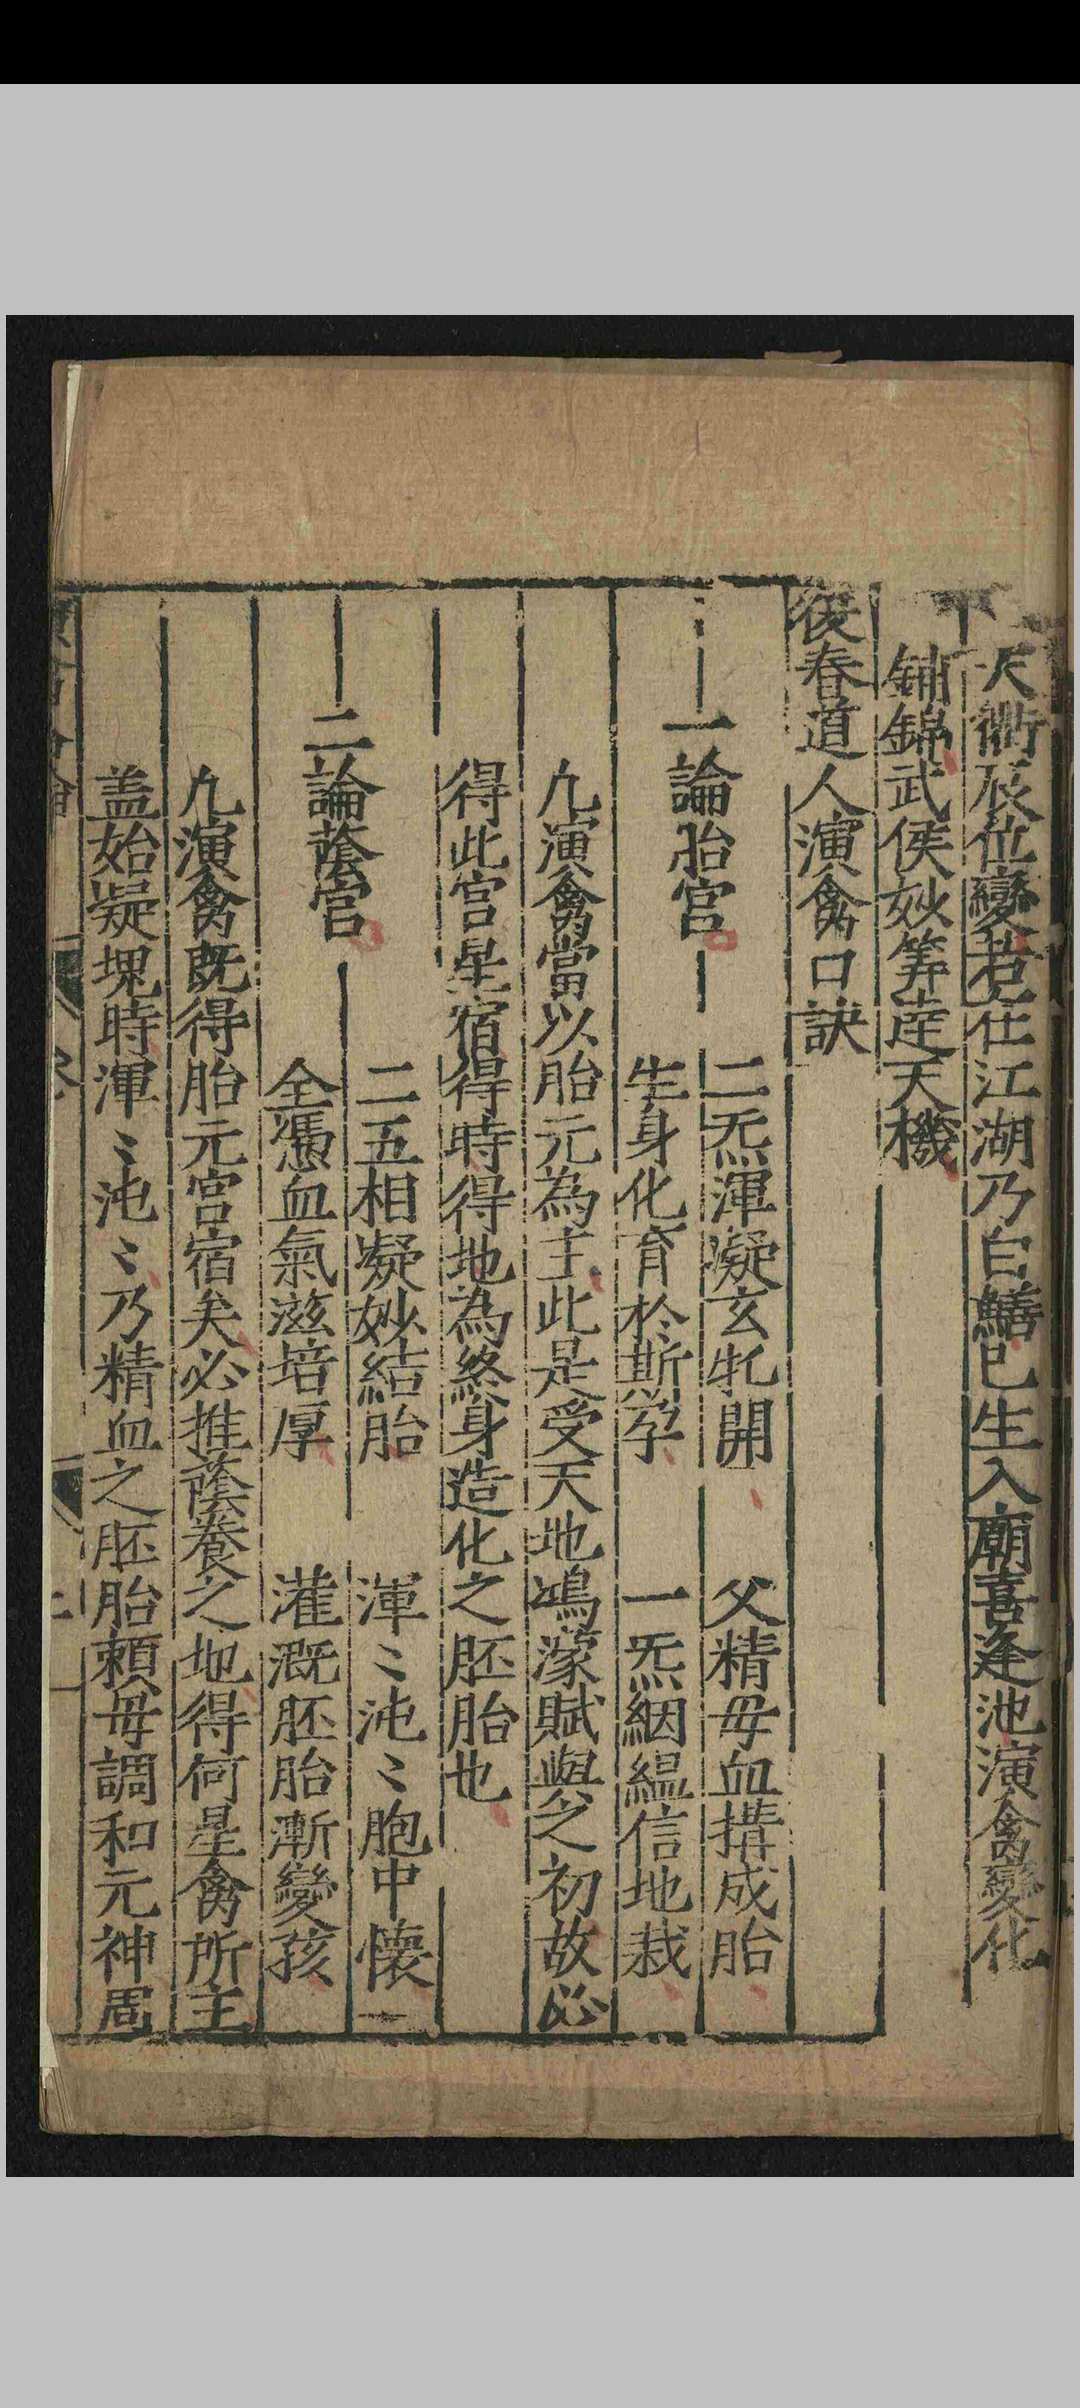 天衢辰位變君在江湖乃白鱔巳生入廟喜逢池演禽變化
鋪錦武侯妙筭達天機
復春道人演禽口訣
一論胎宮
二炁渾凝玄牝開 父精毋血搆成胎
生身化育於斯孕 一炁絪縕信地栽
凢演禽當以胎元為主此是受天地鴻濛賦與之初故必
得此宮星宿得時得地為終身造化之胚胎也
二論蔭宮
二五相凝妙結胎 渾〻沌〻胞中懷
全憑血氣滋培厚 灌溉胚胎漸變孩
凢演禽既得胎元宮宿矣必推蔭養之地得何星禽所主
盖始凝塊時渾〻沌〻乃精血之胚胎頼毋調和元神周